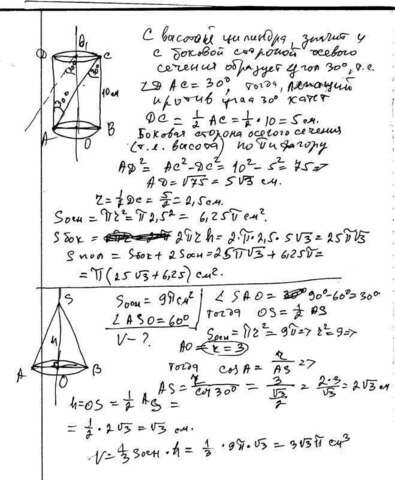 С высотой цилиндра, значит и
с боковой стороной осевого
сечения образует угол 30°, т.е.
∠DAC = 30°, тогда, лежащий
против угла 30° катет
DC = 1/2 AC = 1/2 · 10 = 5 см.
Боковая сторона осевого сечения
(т.е. высота) по Пифагору
AD² = AC² - DC² = 10² - 5² = 75 =>
AD = √75 = 5√3 см.
r = 1/2 DC = 5/2 = 2,5 см.
Sосн = πr² = π2,5² = 6,25π см².
Sбок = 2πrh = 2·π·2,5·5√3 = 25π√3
Sпол = Sбок + 2Sосн = 25π√3 + 6,25π =
= π(25√3 + 6,25) см².
D O₁ C
30° 10см
A O B
S
h
A O B
Sосн = 9π см²
∠ASO = 60°
V - ?
∠SAO = 90° - 60° = 30°
тогда OS = 1/2 AS
Sосн = πr² = 9π => r² = 9 =>
AO = r = 3
тогда cosA = r/AS =>
AS = r/cos 30° = 3/(√3/2) = 2·3/√3 = 2√3 см
h = OS = 1/2 AS =
= 1/2 · 2√3 = √3 см.
V = 1/3 Sосн · h = 1/3 · 9π · √3 = 3√3π см³